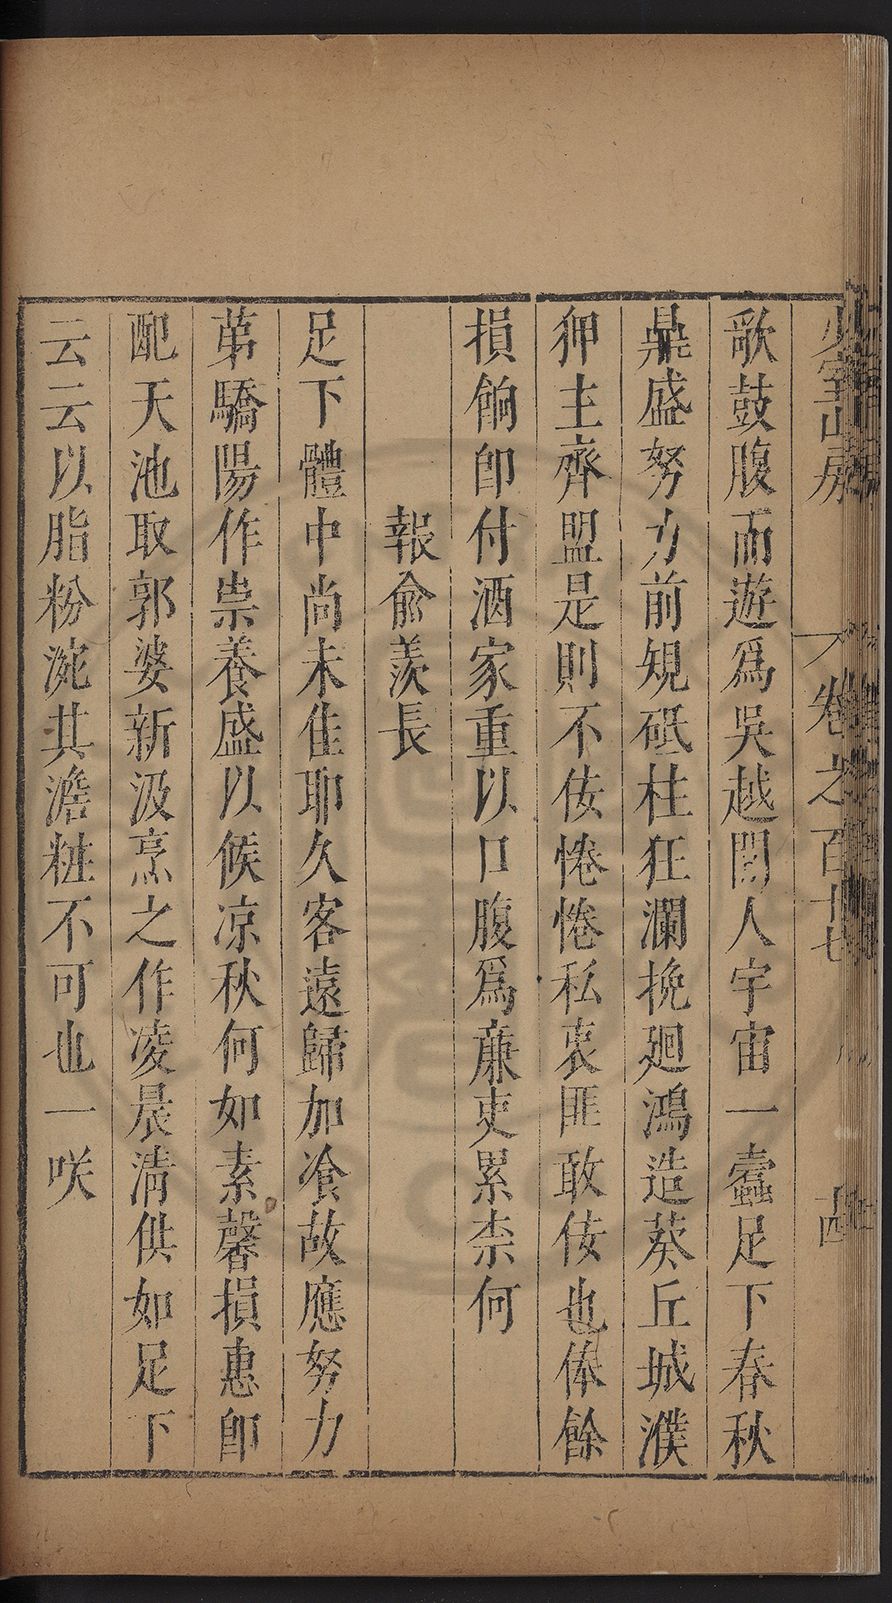 少室山房 卷之百十七 十四
歌鼓腹而遊爲吳越閒人宇宙一蠹足下春秋
鼎盛努力前規砥柱狂瀾挽廻鴻造葵丘城濮
狎主齊盟是則不佞惓惓私衷匪敢佞也俸餘
損餉即付酒家重以口腹爲亷吏累柰何
報俞羨長
足下體中尚未佳耶久客遠歸加飡故應努力
第驕陽作祟養盛以候凉秋何如素馨損惠即
配天池取郭婆新汲烹之作凌晨清供如足下
云云以脂粉涴其澹粧不可也一咲